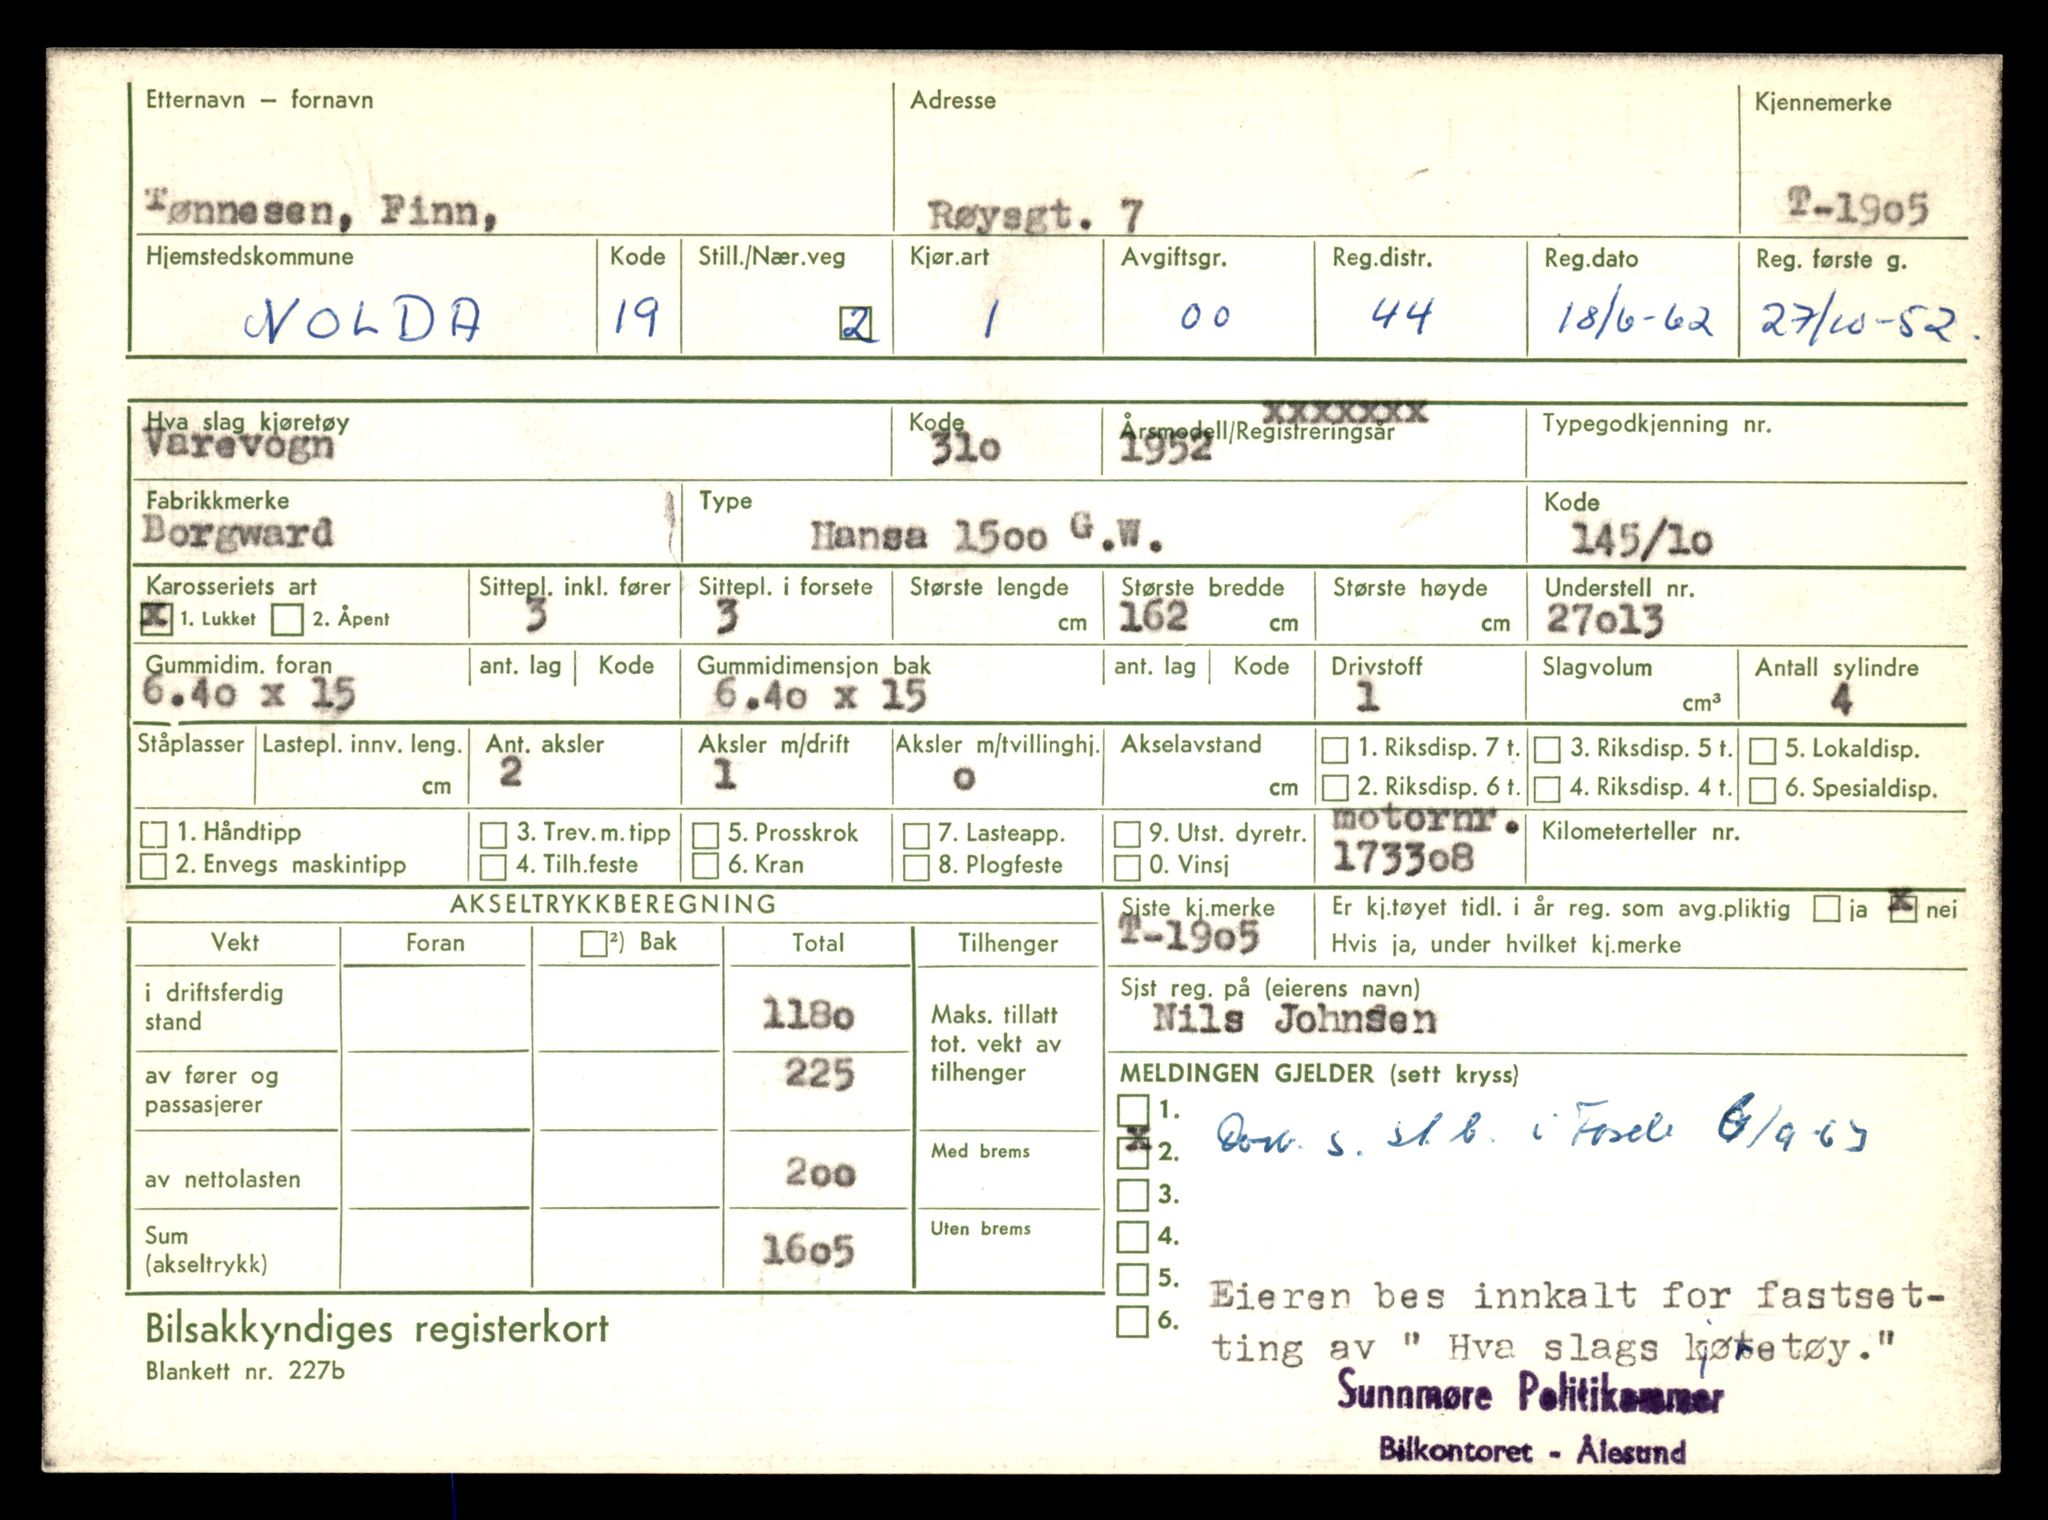 Etternavn — fornavn Adresse Kjennemerke
Tønnesen, Finn, Røysgt. 7 T-1905
Hjemstedskommune Kode Still./Nær.veg Kjør.art Avgiftsgr. Reg.distr. Reg.dato Reg. første g.
NOLDA 19 2 1 00 44 18/6-62 27/10-52.
xxxxxxx
Hva slag kjøretøy Kode Årsmodell/Registreringsår Typegodkjenning nr.
Varevogn 310 1952
Fabrikkmerke Type Kode
Borgward Hansa 1500 G.W. 145/10
Karosseriets art Sittepl. inkl. fører Sittepl. i forsete Største lengde Største bredde Største høyde Understell nr.
x 1. Lukket 2. Åpent 3 3 cm 162 cm cm 27013
Gummidim. foran ant. lag Kode Gummidimensjon bak ant. lag Kode Drivstoff Slagvolum Antall sylindre
6.40 x 15 6.40 x 15 1 cm³ 4
Ståplasser Lastepl. innv. leng. Ant. aksler Aksler m/drift Aksler m/tvillinghj. Akselavstand 1. Riksdisp. 7 t. 3. Riksdisp. 5 t. 5. Lokaldisp.
cm 2 1 0 cm 2. Riksdisp. 6 t. 4. Riksdisp. 4 t. 6. Spesialdisp.
1. Håndtipp 3. Trev. m. tipp 5. Prosskrok 7. Lasteapp. 9. Utst. dyretr. motornr. Kilometerteller nr.
2. Envegs maskintipp 4. Tilh.feste 6. Kran 8. Plogfeste 0. Vinsj 173308
AKSELTRYKKBEREGNING Siste kj.merke Er kj.tøyet tidl. i år reg. som avg.pliktig ja x nei
Vekt Foran ²) Bak Total Tilhenger T-1905 Hvis ja, under hvilket kj.merke
i driftsferdig stand 1180 Maks. tillatt tot. vekt av tilhenger
Sist reg. på (eierens navn)
Nils Johnsen
av fører og passasjerer 225
MELDINGEN GJELDER (sett kryss)
1.
x 2. s. st. b. i /9-63
3.
4.
5.
6.
av nettolasten 200 Med brems
Sum (akseltrykk) 1605 Uten brems
Eieren bes innkalt for fastset-
ting av " Hva slags kjøretøy."
Bilsakkyndiges registerkort
Blankett nr. 227b
Sunnmøre Politikammer
Bilkontoret - Ålesund